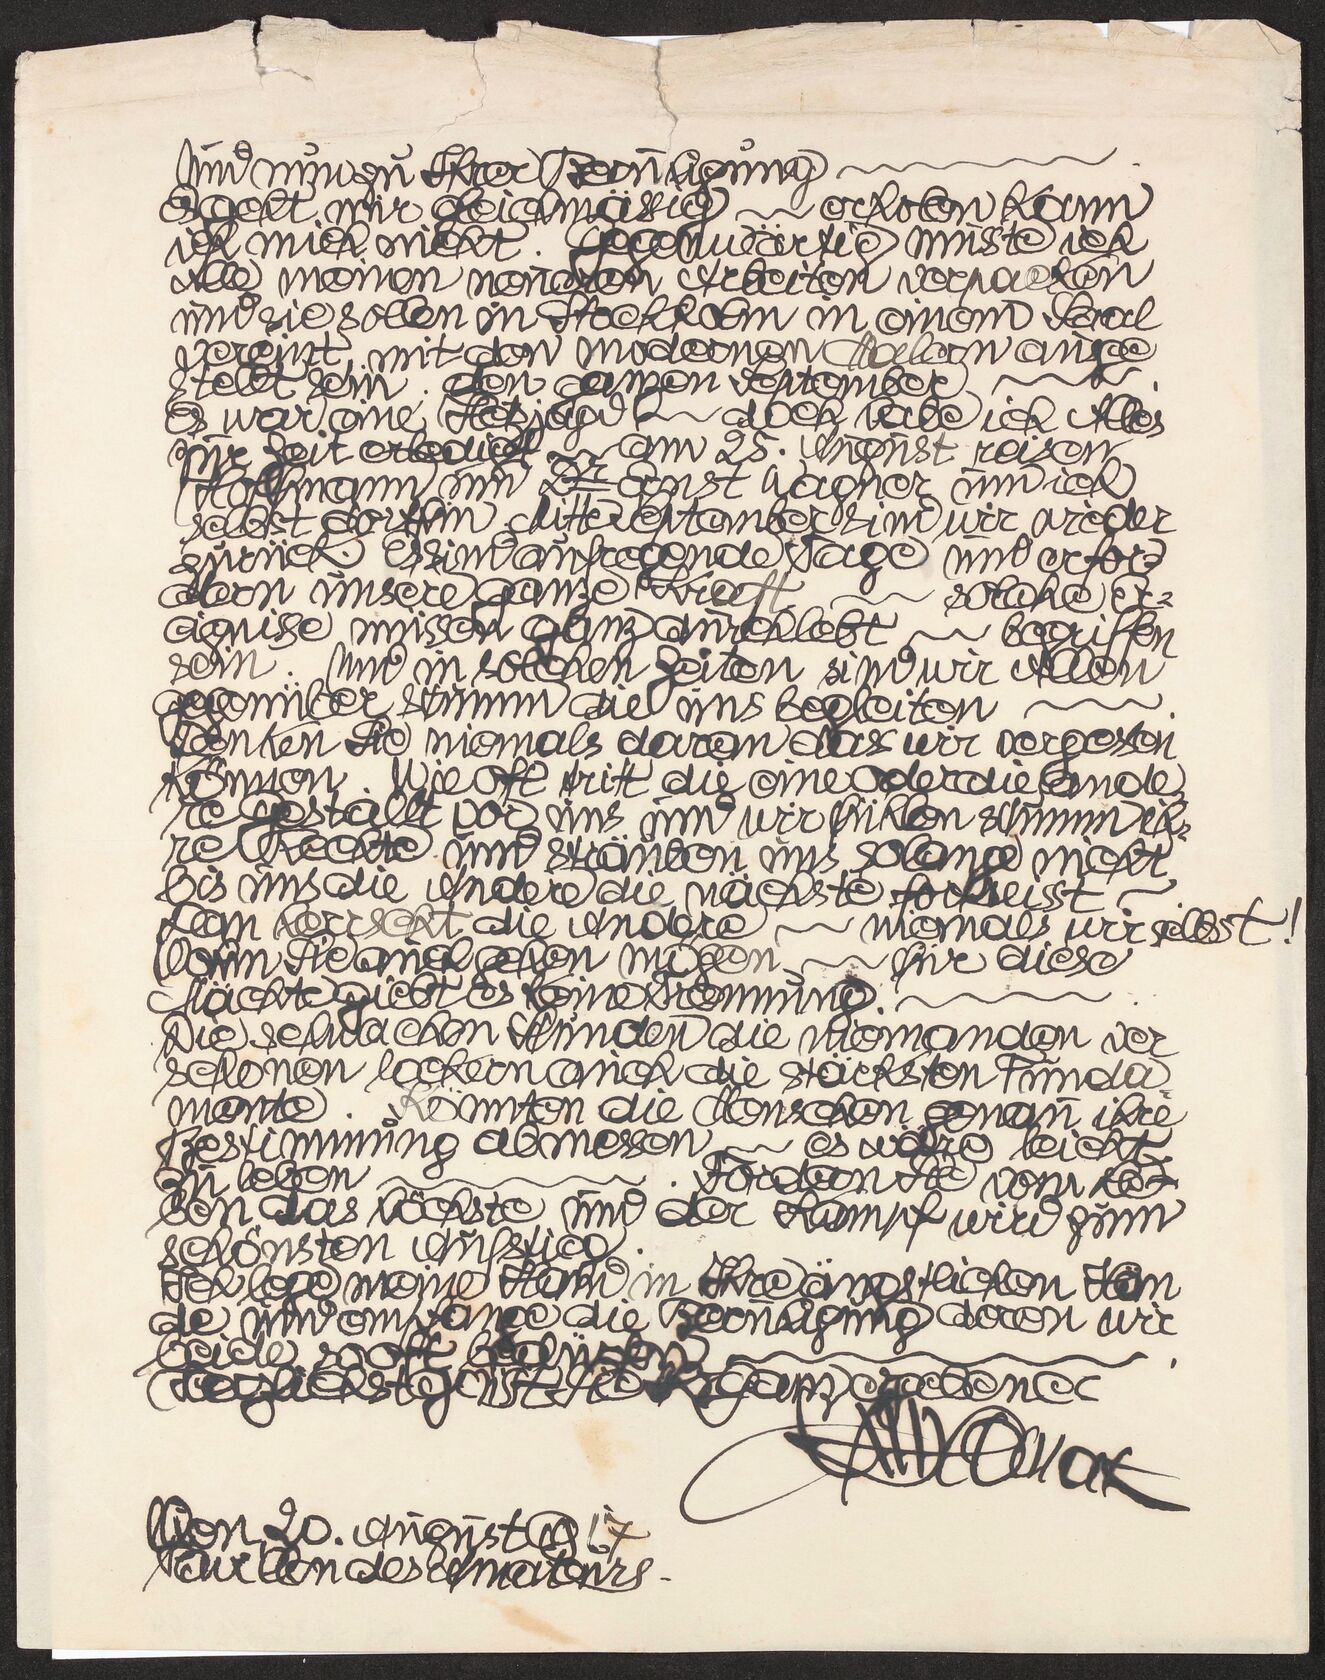 Und nun zu Ihrer Beruhigung
Es geht mir gleichmässig erholen kann
ich mich nicht. Gegenwärtig musste ich
Alle meinen neueren Arbeiten verpacken
und sie sollen in Stockholm in einem Saal
vereint mit den modernen Malern ausge
stellt sein. den ganzen September.
Es war eine Hetzjagd doch habe ich Alles
zur Zeit erledigt am 25. August reisen
Hoffmann und Dr Ernst Wagner und ich
selbst dorthin Mitte September sind wir wieder
zurück. Es sind aufregende Tage und erfor=
dern unsere ganze Kraft solche Er=
eignisse müssen ganz durchlebt begriffen
sein. Und in solchen Zeiten sind wir Allen
gegenüber stumm die uns begleiten.
Denken Sie niemals daran das wir vergessen
können. Wie oft tritt die eine oder die ande
re Gestallt vor uns und wir fühlen stumm ih=
re Rechte und sträuben uns solange nicht
bis uns die Andere die nächste fortreisst
Dan herrscht die Andere niemals wir selbst!
Wenn Sie auch gehen mögen für diese
Mächte giebt es keine Trennung.
Die schwachen Stunden die Niemanden ver
schonen lockern auch die stärksten Funda
mente. Könnten die Menschen genau ihre
Bestimmung abmessen es wäre leicht
zu leben. Fordern Sie vom Le=
ben das höchste und der Kampf wird zum
schönsten Aufstieg.
Ich lege meine Hand in Ihre ängstlichen Hän
de und empfange die Beruhigung deren wir
beide so oft bedürfen.
Herzlichst grüsst Sie Ihr ganz ergebener
Wien 20. August 1917
Pavillon des Amateurs.